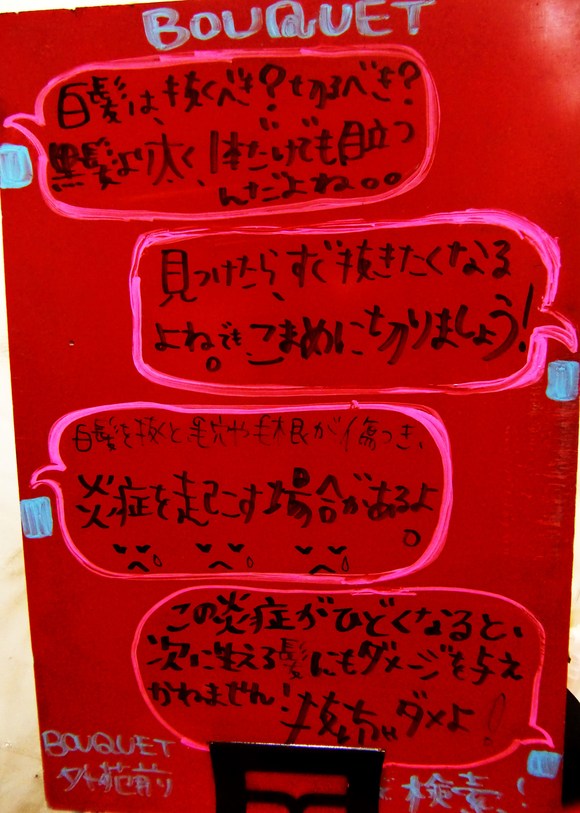 BOUQUET
白髪は、抜くべき?切るべき?
黒髪より太く、1本だけでも目立つ
んだよね。。
見つけたら、すぐ抜きたくなる
よね。でも、こまめに切りましょう!
白髪を抜くと毛穴や毛根が傷つき、
炎症を起こす場合があるよ
。
この炎症がひどくなると、
次に生える髪にもダメージを与え
かねません!抜いちゃダメよ!
BOUQUET
外苑前
で検索!